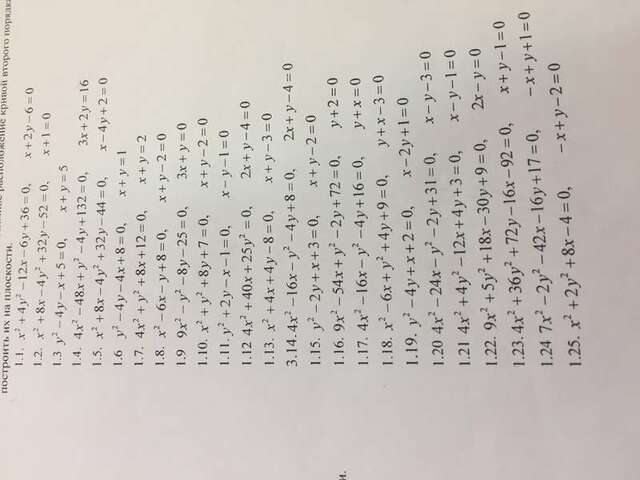 расположение кривой второго порядка
построить их на плоскости.
1.1. x²+4y²−12x−6y+36=0, x+2y−6=0
1.2. x²+8x−4y²+32y−52=0, x+1=0
1.3 y²−4y−x+5=0, x+y=5
1.4. 4x²−48x+y²−4y+132=0, 3x+2y=16
1.5. x²+8x−4y²+32y−44=0, x−4y+2=0
1.6 y²−4y−4x+8=0, x+y=1
1.7. 4x²+y²+8x+12=0, x+y=2
1.8. x²−6x−y+8=0, x+y−2=0
1.9 9x²−y²−8y−25=0, 3x+y=0
1.10. x²+y²+8y+7=0, x+y−2=0
1.11. y²+2y−x−1=0, x−y−1=0
1.12 4x²+40x+25y²=0, 2x+y−4=0
1.13. x²+4x+4y−8=0, x+y−3=0
3.14. 4x²−16x−y²−4y+8=0, 2x+y−4=0
1.15. y²−2y+x+3=0, x+y−2=0
и.
1.16. 9x²−54x+y²−2y+72=0, y+2=0
1.17. 4x²−16x−y²−4y+16=0, y+x=0
1.18. x²−6x+y²+4y+9=0, y+x−3=0
1.19. y²−4y+x+2=0, x−2y+1=0
1.20 4x²−24x−y²−2y+31=0, x−y−3=0
1.21 4x²+4y²−12x+4y+3=0, x−y−1=0
1.22. 9x²+5y²+18x−30y+9=0, 2x−y=0
1.23. 4x²+36y²+72y−16x−92=0, x+y−1=0
1.24 7x²−2y²−42x−16y+17=0, −x+y+1=0
1.25. x²+2y²+8x−4=0, −x+y−2=0